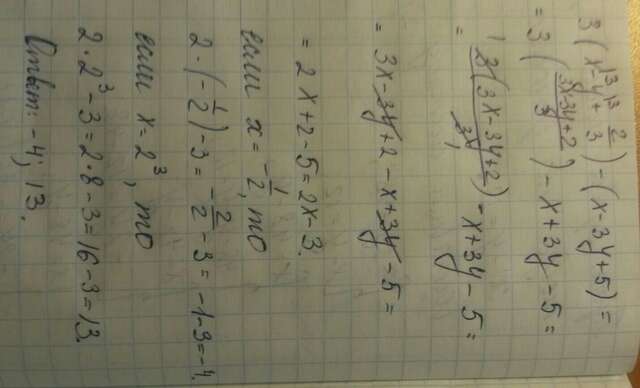 3(x³⁾ - y³⁾ + 2/3) - (x - 3y + 5) =
= 3((3x - 3y + 2)/3) - x + 3y - 5 =
= ¹3(3x - 3y + 2)/3₁ - x + 3y - 5 =
= 3x - 3y + 2 - x + 3y - 5 =
= 2x + 2 - 5 = 2x - 3.
если x = -1/2, то
2 · (-1/2) - 3 = -2/2 - 3 = -1 - 3 = -4.
если x = 2³, то
2 · 2³ - 3 = 2 · 8 - 3 = 16 - 3 = 13.
Ответ: -4; 13.